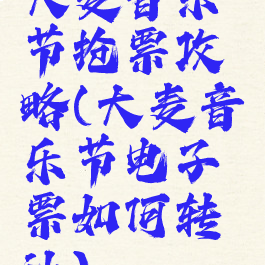 大麦音乐
节抢票攻
略(大麦音
乐节电子
票如何转